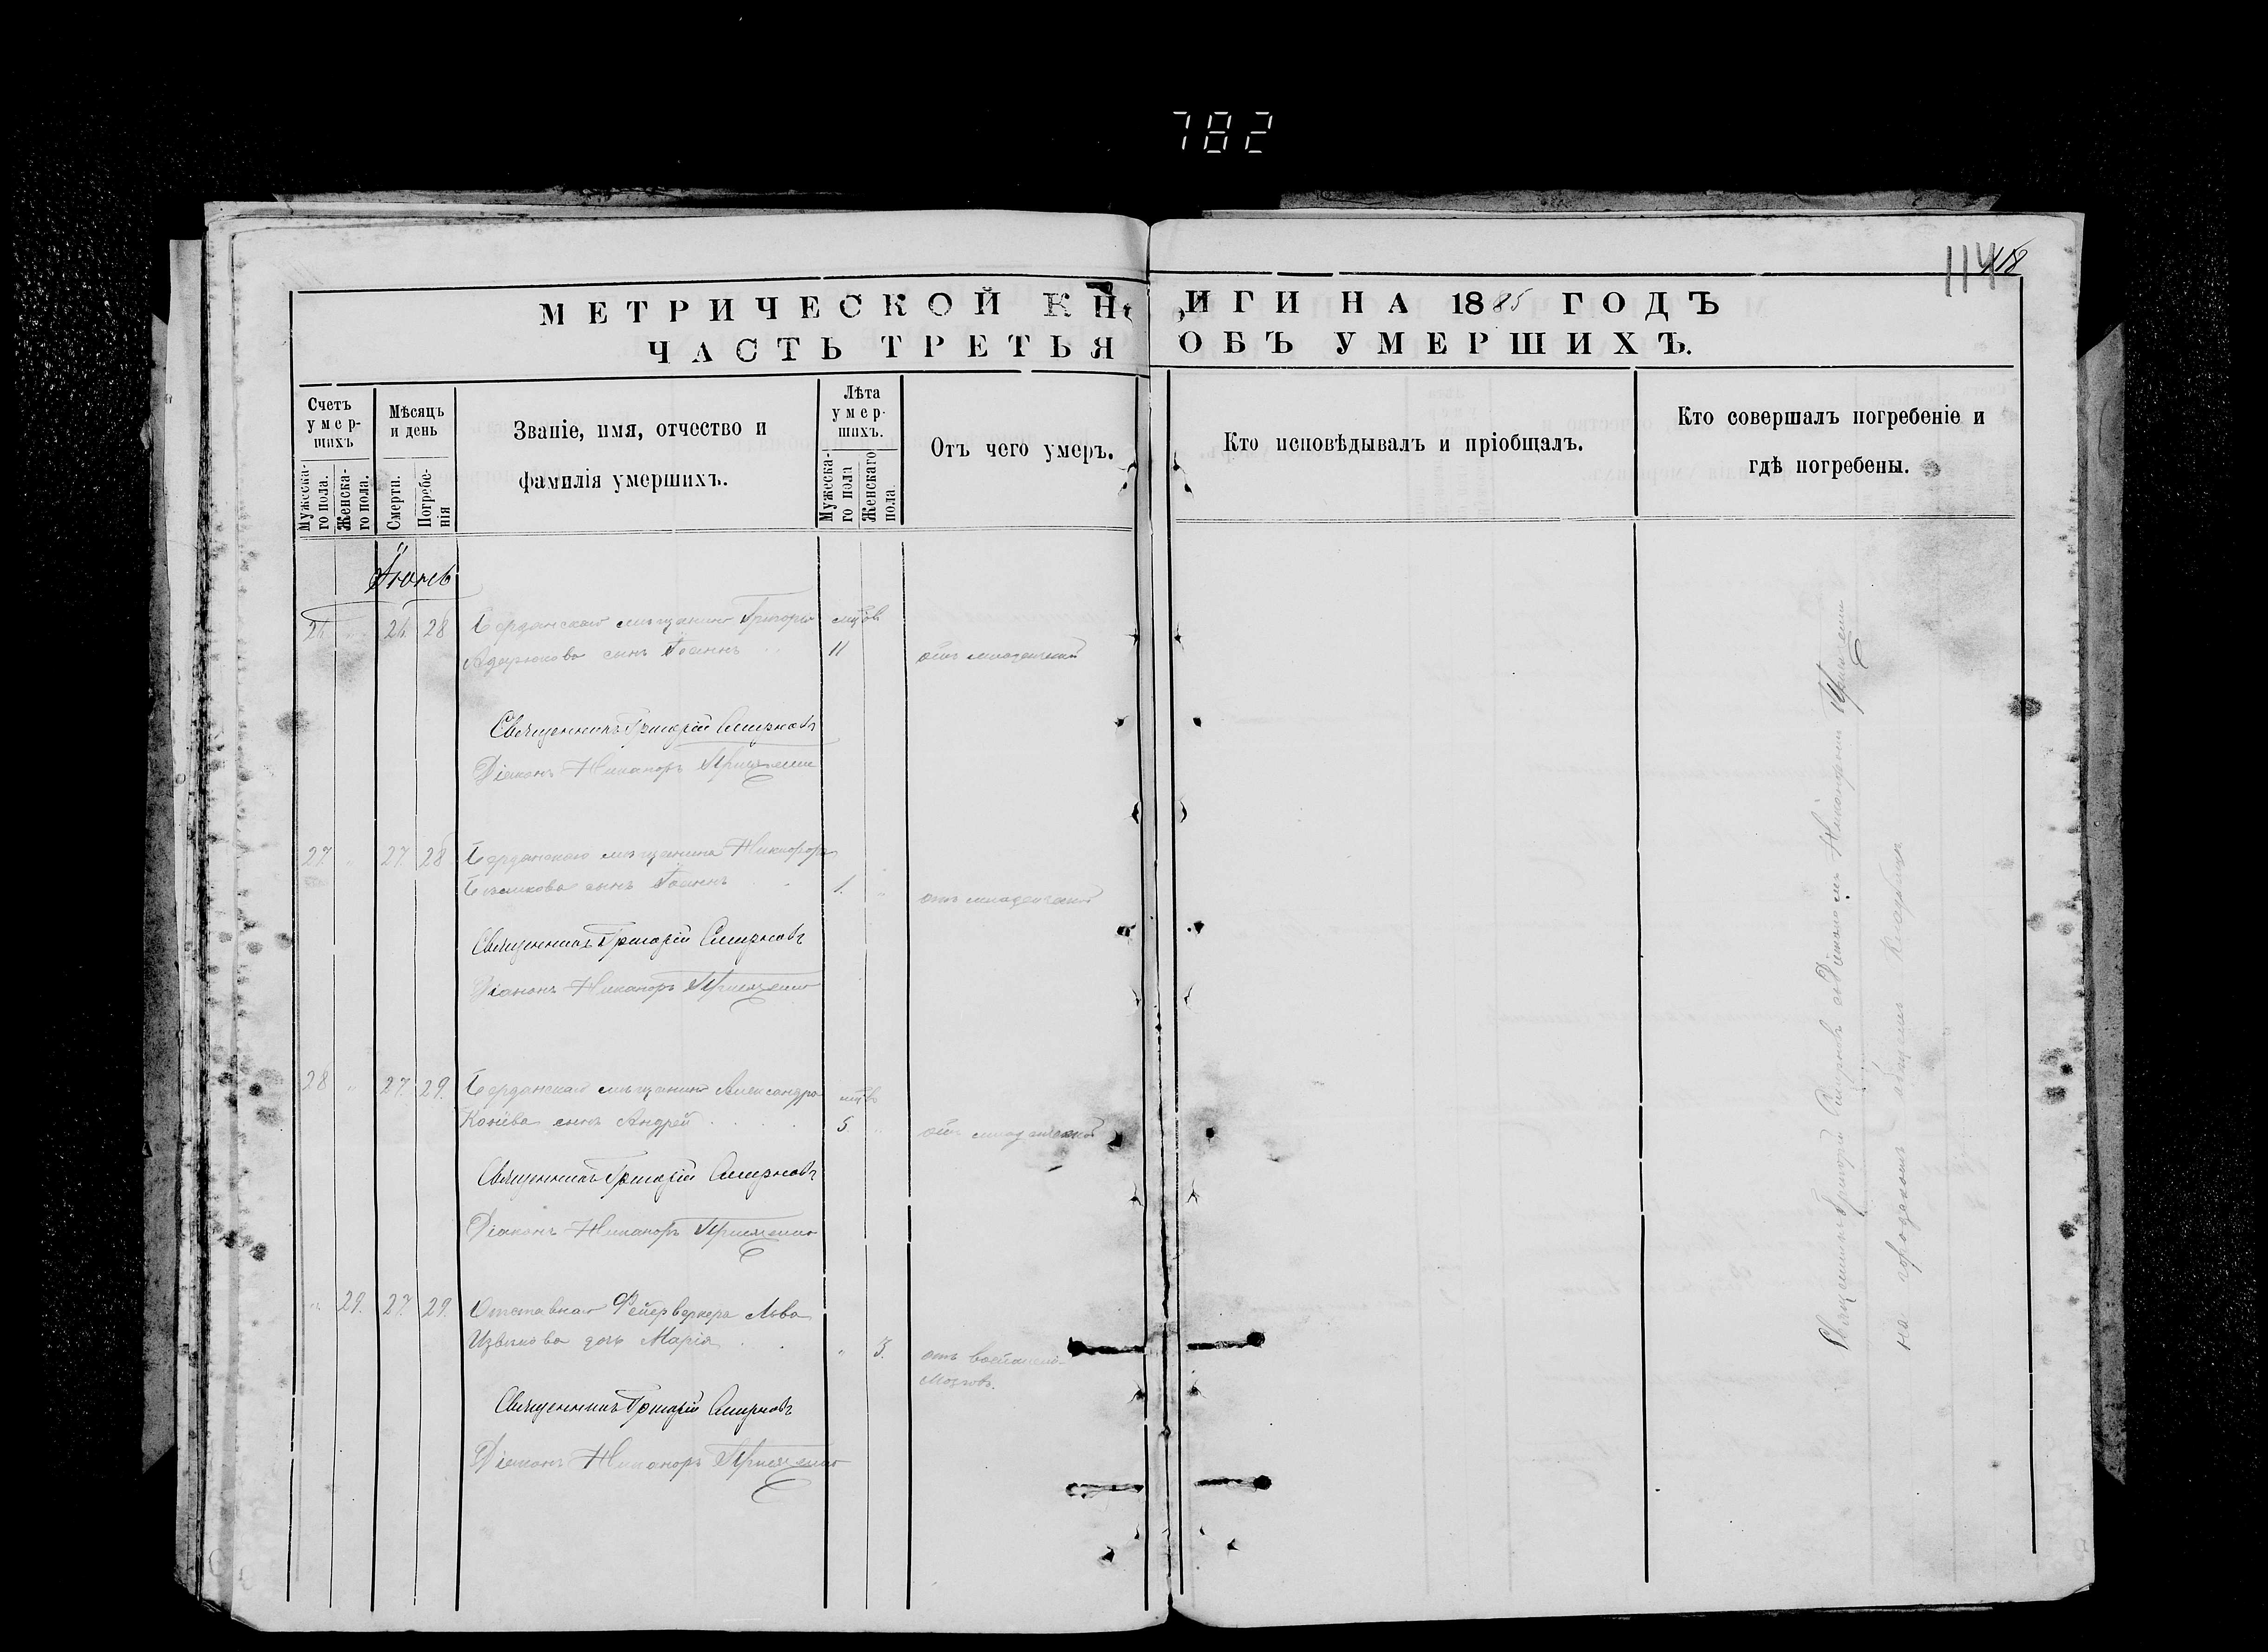 782
114 118
МЕТРИЧЕСКОЙ КНИГИ НА 1885 ГОДЪ
ЧАСТЬ ТРЕТЬЯ ОБЪ УМЕРШИХЪ.
Счетъ умер-
шихъ
Мужеска-
го пола.
Женска-
го пола.
Мѣсяцъ
и день
Смерти.
Погребе-
нія
Званіе, имя, отчество и
фамилія умершихъ.
Лѣта
умер-
шихъ.
Мужеска-
го пола
Женскаго
пола
Отъ чего умеръ.
Кто исповѣдывалъ и пріобщалъ.
Кто совершалъ погребеніе и
гдѣ погребены.
Іюнь
26. 28 Бердянскаго мѣщанина Григорія
сынъ Іоаннъ 11 отъ младенческой
Священникъ Григорій Смирновъ
Діаконъ Никаноръ
27 " 27. 28 Бердянскаго мѣщанина Никифора
сынъ Іоаннъ 1. " отъ младенческой
Священникъ Григорій Смирновъ
Діаконъ Никаноръ
28 " 27. 29. Бердянскаго мѣщанина Александра
Конева сынъ Андрей 5 " отъ младенческой
Священникъ Григорій Смирновъ
Діаконъ Никаноръ
" 29. 27. 29. Отставнаго Фейерверкера Льва
Извѣкова дочь Марія " 3. отъ воспаленія
мозговъ.
Священникъ Григорій Смирновъ
Діаконъ Никаноръ
Священникъ Григорій Смирновъ съ Діакономъ Никаноромъ
на городскомъ общемъ кладбищѣ